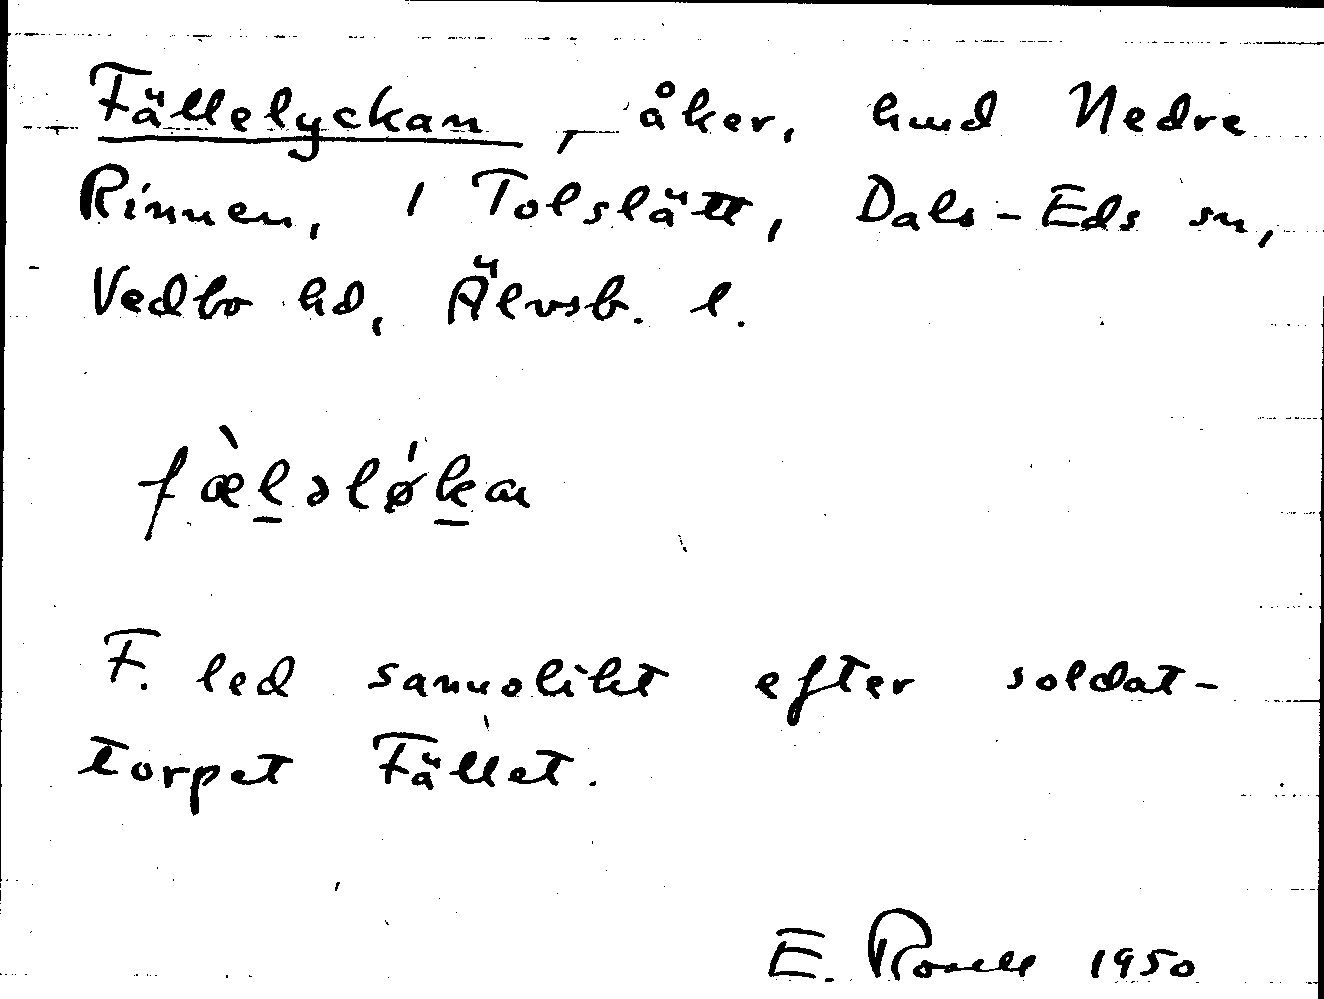 Fällelyckan, åker, hmd Nedre
Rinnen, 1 Tolslätt, Dals-Eds sn,
Vedbo hd, Älvsb. l.
fæ̀l̲əlǿk̲an
F. led sannolikt efter soldat-
torpet Fället.
E. Rosell 1950